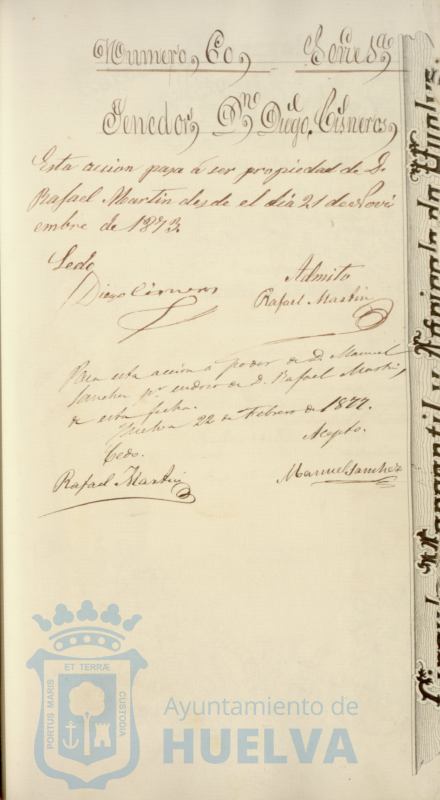 Numero, 60, Serie 5ª
Tenedor, Dn. Diego Cisneros,
Esta accion pasa á ser propiedad de D.
Rafael Martin desde el dia 21 de Novi
embre de 1873.
Cedo
Diego Cisneros
Admito
Rafael Martin
Pasa esta acción á poder de D. Manuel
Sanchez pr. endoso de D. Rafael Martin,
de esta fecha.
Huelva 22 de Febrero de 1877.
Cedo.
Acepto.
Rafael Martin
Manuel Sanchez
Círculo Mercantil y Agrícola de Huelva.
PORTUS MARIS ET TERRÆ CUSTODIA
Ayuntamiento de
HUELVA